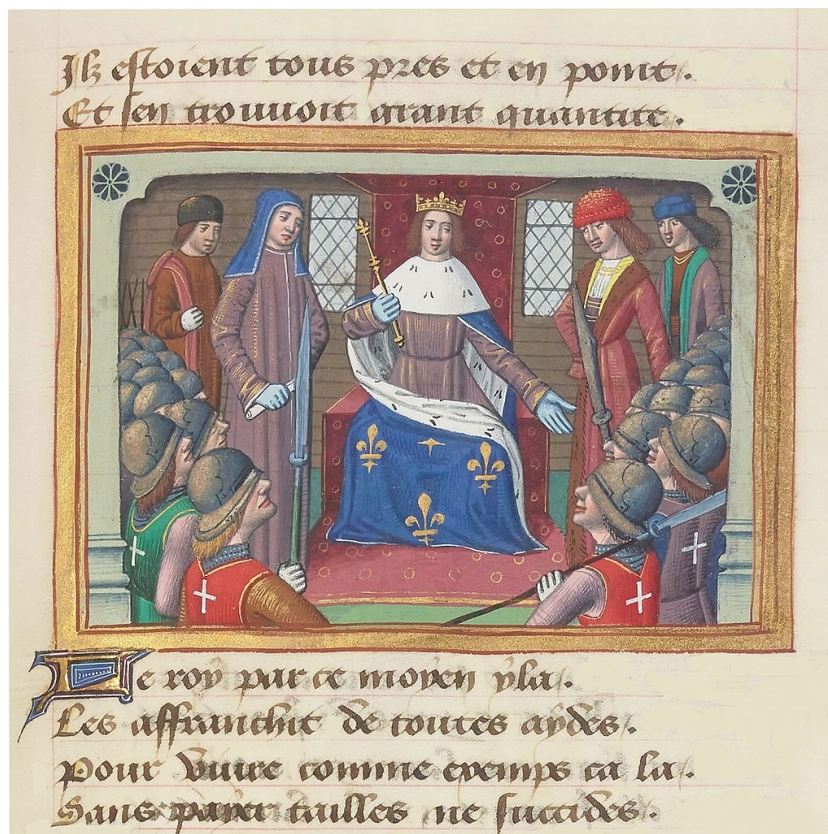 Ilz estoient tous pres et en point.
Et sen trouvoit grant quantite.
Le roy par ce moyen yla.
Les affranchit de toutes aydes.
Pour vivre comme exemps ca la.
Sans paier tailles ne succides.